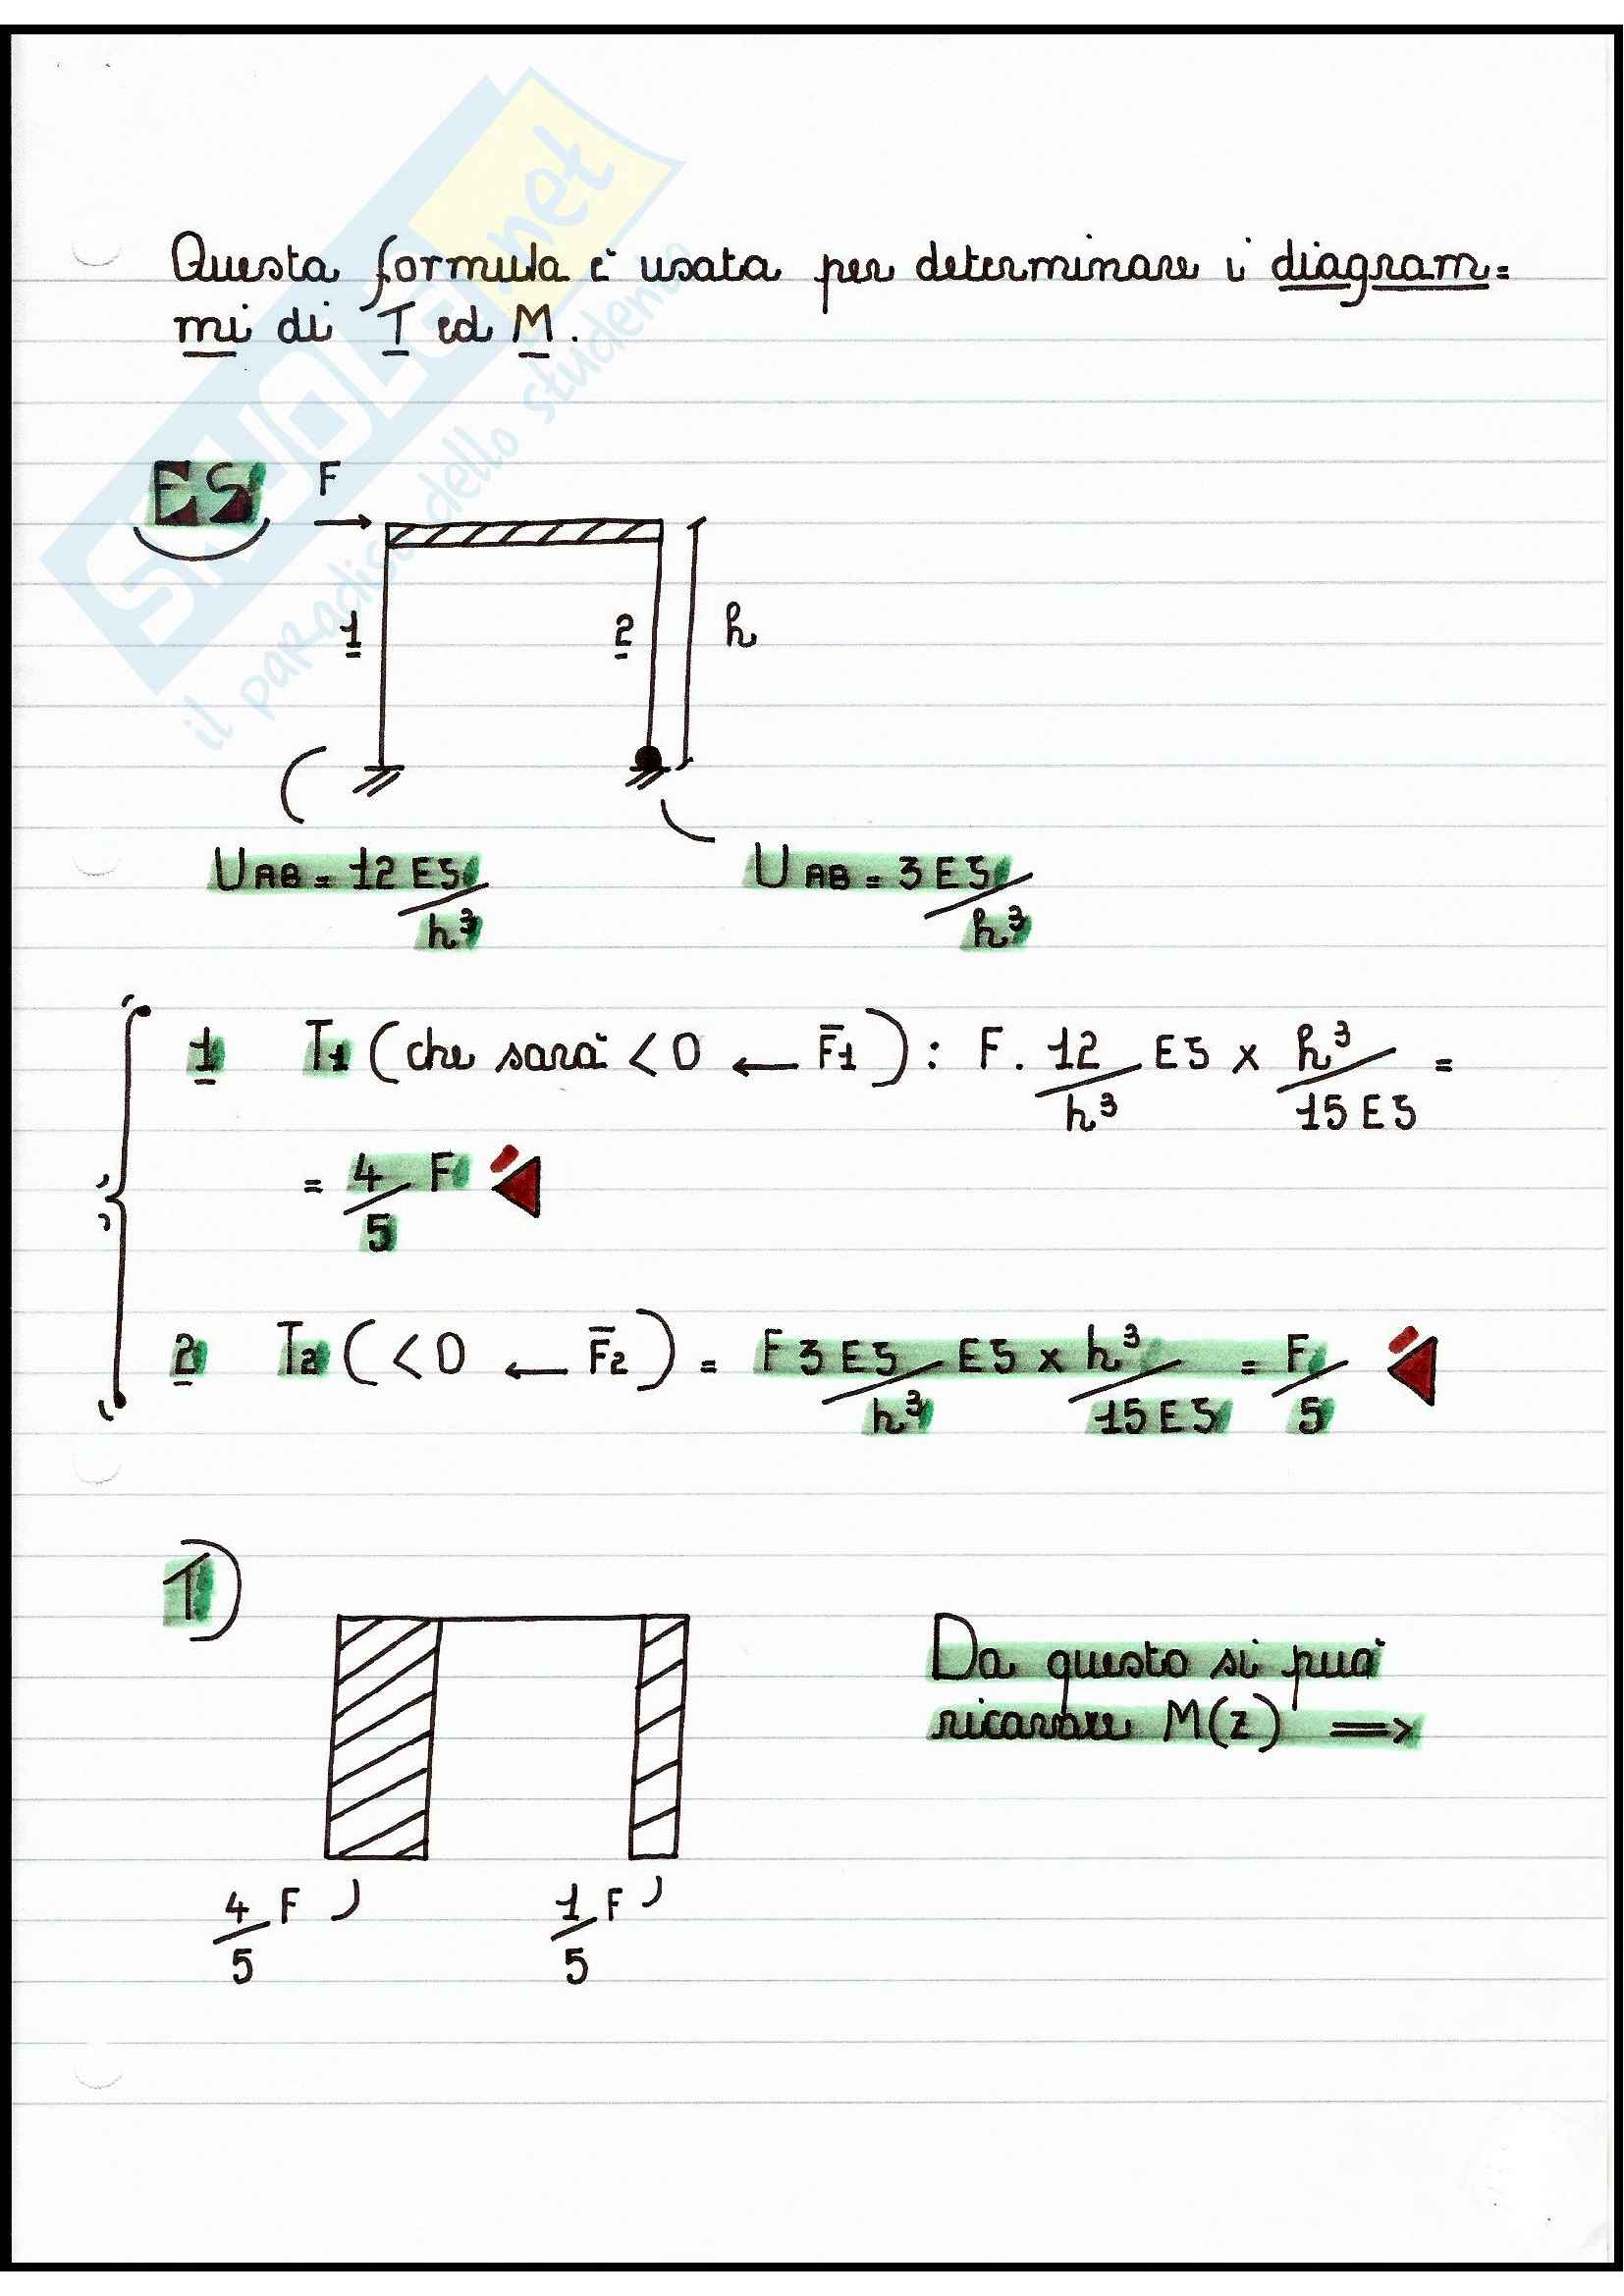 Questa formula è usata per determinare i diagram=
mi di T ed M.
ES F
1 2 h
U AB = 12 EJ/h³ U AB = 3 EJ/h³
1 T1 (che sarà < 0 ← F̄1) : F . 12/h³ EJ x h³/15 EJ =
= 4/5 F
2 T2 (< 0 ← F̄2) = F 3 EJ/h³ EJ x h³/15 EJ = F/5
T)
Da questo si può
ricavare M(z) =>
4/5 F 1/5 F
SKUOLA.net
il paradiso dello studente